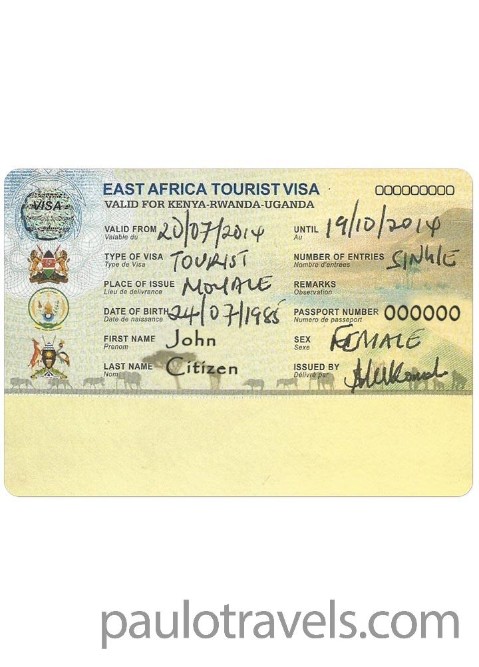 EAST AFRICA TOURIST VISA 000000000
VISA
VALID FOR KENYA-RWANDA-UGANDA
VALID FROM 20/07/2014 UNTIL 19/10/2014
Valable du Au
TYPE OF VISA TOURIST NUMBER OF ENTRIES SINGLE
Type de Visa Nombre d'entrees
PLACE OF ISSUE MOYALE REMARKS
Lieu de delivrance Observation
DATE OF BIRTH 24/07/1985 PASSPORT NUMBER 000000
Date de naissance Numero de passeport
FIRST NAME John SEX FEMALE
Prenom Sexe
LAST NAME Citizen ISSUED BY
Nom Délivré par
paulotravels.com